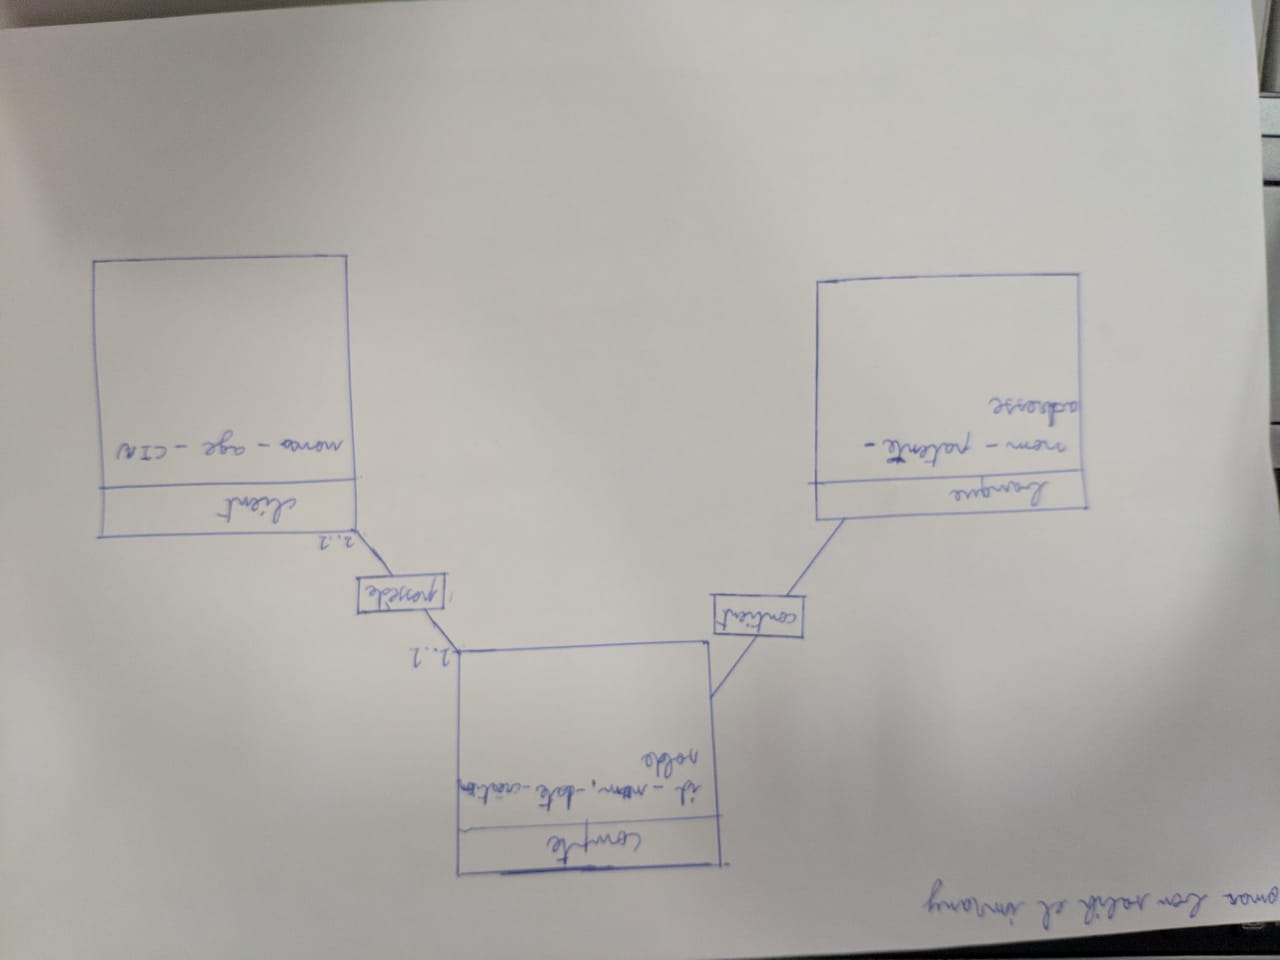 omar ben salih el imrany
compte
id - nom, - date - création
solde
1..1
contient
possède
1..1
banque
client
nom - patente -
adresse
- age - CIN